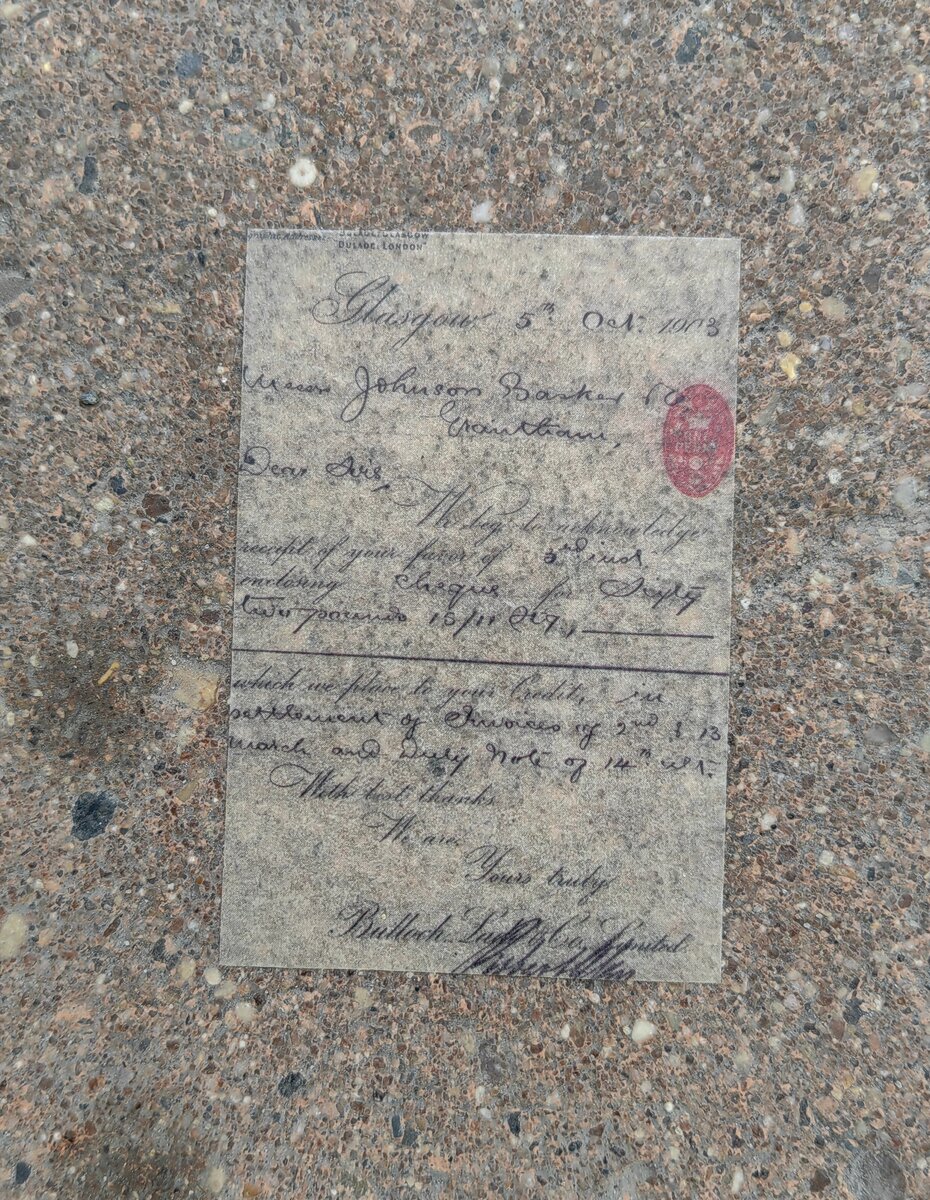 "DULADE, GLASGOW"
DULADE, LONDON"
Glasgow 5th Oct. 1903.
Messrs Johnson Barker & Co,
Grantham,
Dear Sirs,
We beg to acknowledge
receipt of your favor of 3rd inst
enclosing cheque for Sixty
two pounds 15/11 Stg.,
which we place to your Credit, in
settlement of Invoices of 2nd & 13
March and Duty Note of 14th ult.
With best thanks
We are,
Yours truly
Bulloch Lade & Co, Limited